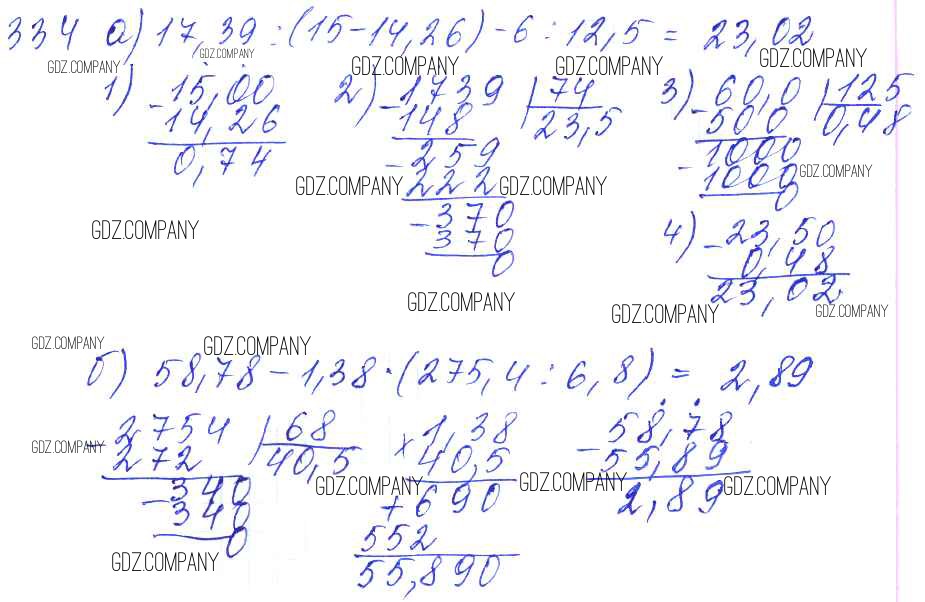 334 а) 17,39 : (15-14,26) - 6 : 12,5 = 23,02
GDZ.COMPANY GDZ.COMPANY GDZ.COMPANY GDZ.COMPANY GDZ.COMPANY
1) - 15,00 2) - 1739 | 74 3) - 60,0 | 125
14,26 148 23,5 500 0,48
0,74 - 259 - 1000 GDZ.COMPANY
GDZ.COMPANY 222 GDZ.COMPANY 1000
- 370 0
GDZ.COMPANY 370 4) - 23,50
0 0,48
GDZ.COMPANY 23,02
GDZ.COMPANY GDZ.COMPANY
GDZ.COMPANY GDZ.COMPANY
б) 58,78 - 1,38 · (275,4 : 6,8) = 2,89
- 2754 | 68 × 1,38 - 58,78
GDZ.COMPANY
272 40,5 40,5 55,89
- 340 GDZ.COMPANY + 690 GDZ.COMPANY 2,89 GDZ.COMPANY
340 552
0 55,890
GDZ.COMPANY